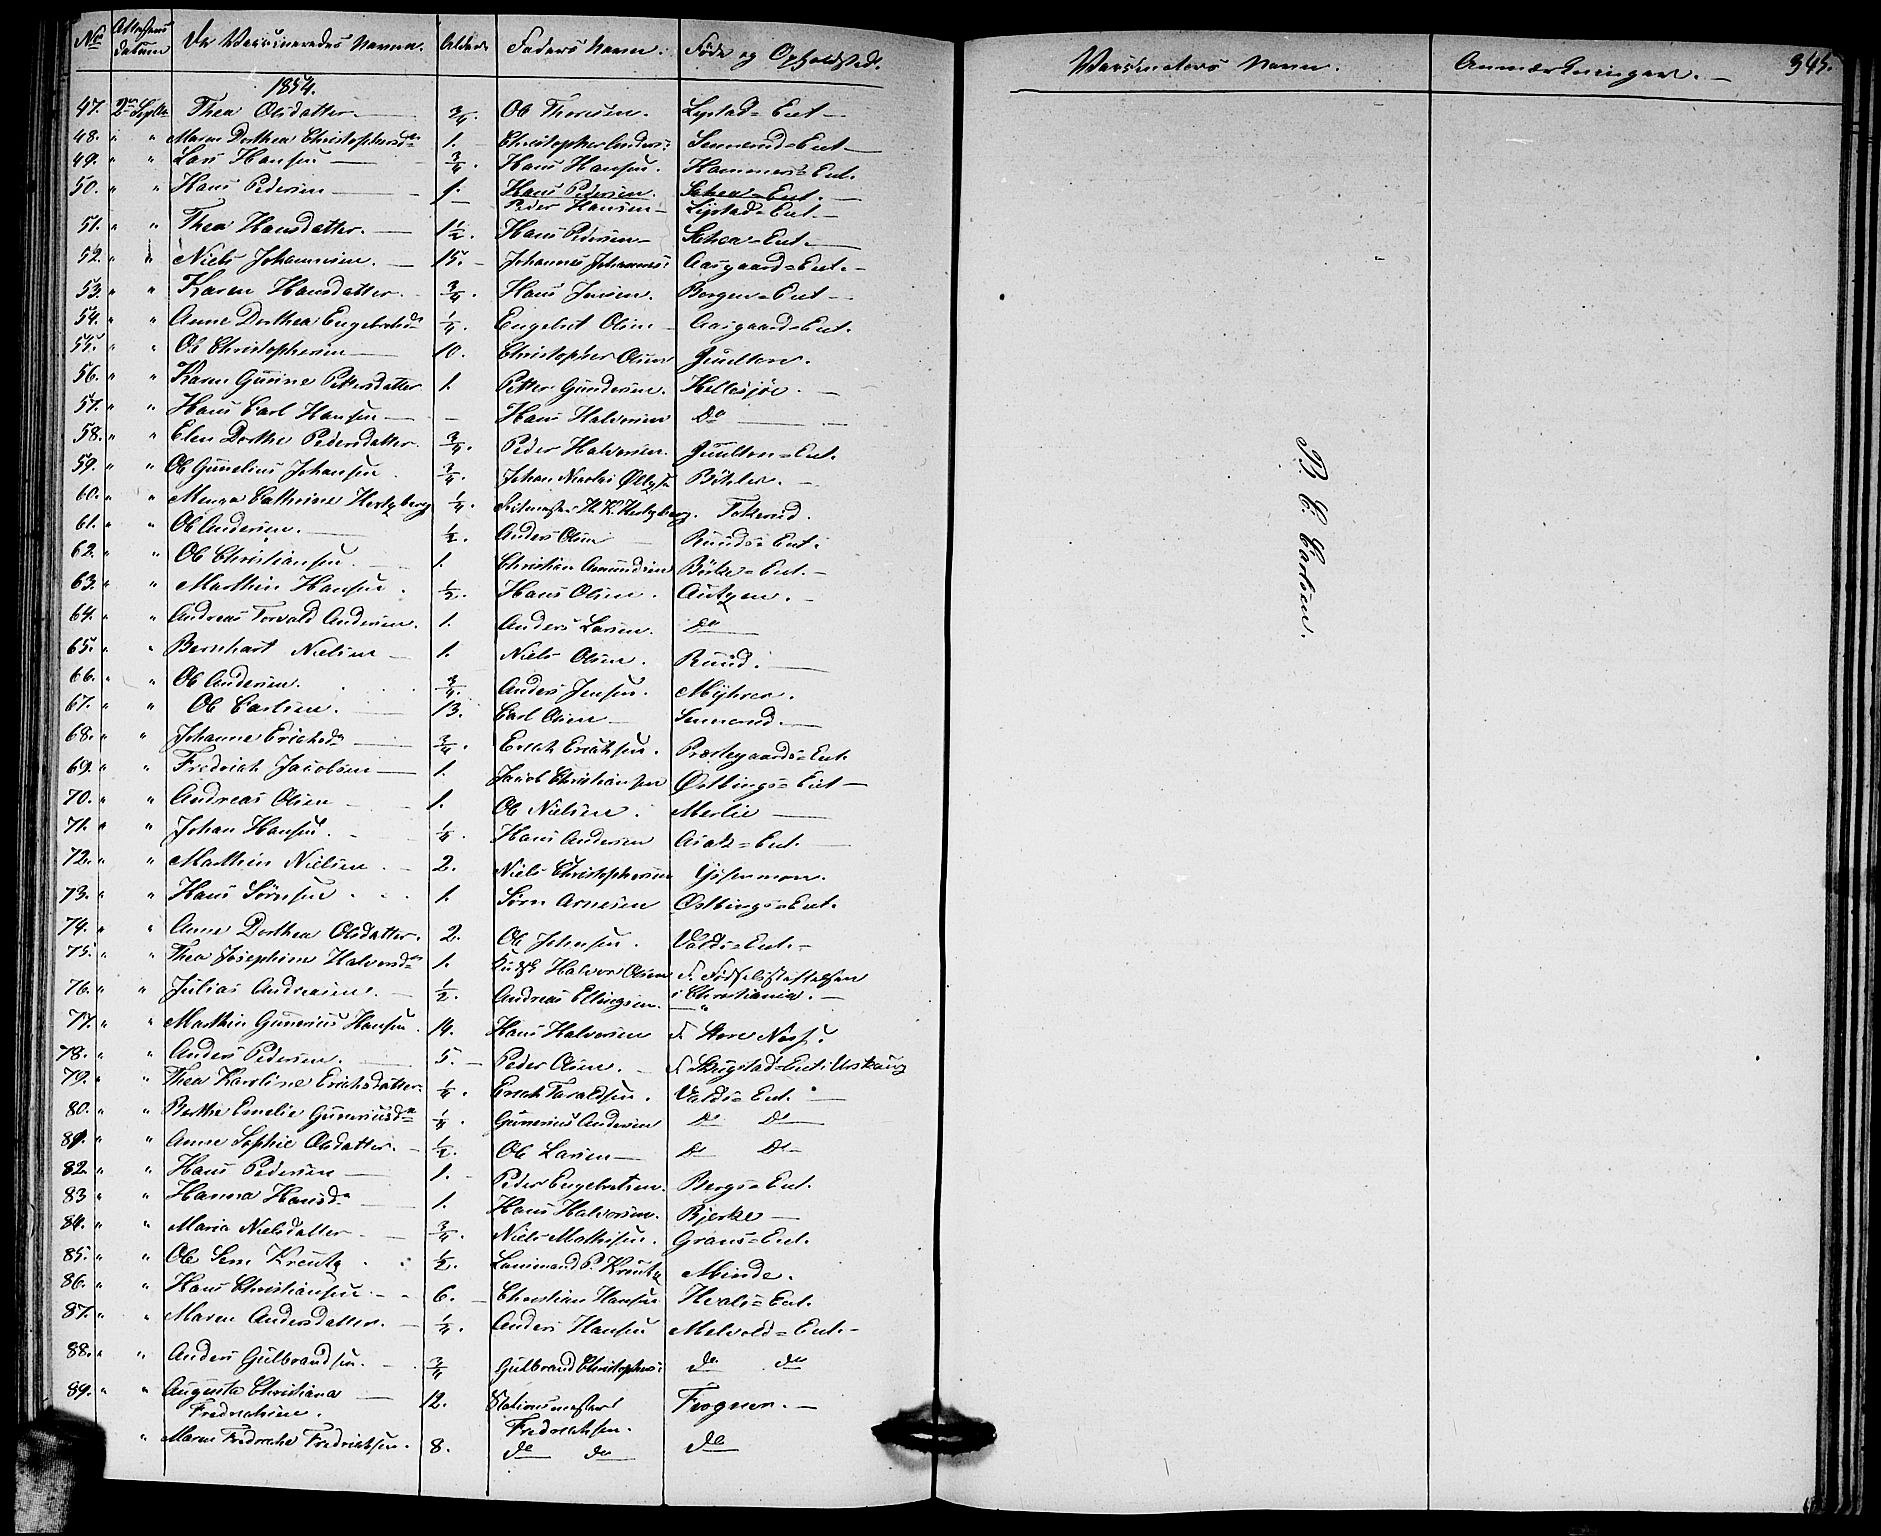 No Attestens datum De Vaccineredes Navne. Alder Faders Navn. Føde og Opholdsted. Vaccinateurs Navn. Anmærkninger. 345.
1854.
47. 2den Septbr Thea Olsdatter 3/4. Ole Thoresen. Lystad=Eiet
48. " " Maren Dorthea Christophersdr 1. Christopher Anders: =Eiet
49. " " Lars Hansen 3/4. Hans Hansen. Hammers=Eiet.
50. " " Hans Pedersen 1. Hans Pedersen. =Eiet.
Peder Hansen Lystad=Eiet.
51. " " Thea Hansdatter. 1 1/2. Hans Pedersen =Eiet.
52. " " Niels Johannesen. 15. Johannes Johannes: Aasgaard=Eiet.
53. " " Karen Hansdatter. 3/4. Hans Jensen. Borgen=Eiet
54. " " Anne Dorthea Engebretsdr 1/4. Engebret Olsen Aasgaard=Eiet.
55. " " Ole Christophersen 10. Christopher Olsen
56. " " Karen Gurine Pettersdatter 1. Petter Gundersen. Hellesjøe.
57. " " Hans Carl Hansen Hans Halvorsen Do
58. " " Elen Dorthe Pedersdatter 3/4. Peder Halvorsen. =Eiet.
59. " " Ole Gunelius Johansen 3/4. Johan Nicolai Bøhler.
60. " " Menga Cathrine Hertzberg 1/4. H. K. Hertzberg. Tokerud.
61. " " Ole Andersen. 1/2. Anders Olsen Ruuds=Eiet:
62. " " Ole Christiansen. 1. Christian Amundsen =Eiet.
63. " " Marthin Hansen. 1/2. Hans Olsen. Autzen.
64. " " Andreas Torvald Andersen. 1. Anders Larsen. Do
65. " " Bernhart Nielsen 1. Niels Olsen. Ruud.
66. " " Ole Andersen. 3/4. Anders Jensen. Myhrer.
67. " " Ole Carlsen. 13. Carl Olsen
68. " " Johanne Erichsdr 3/4. Erich Erichsen. Præstegaards=Eiet.
69. " " Fredrich Jacobsen 1. Jacob Christiansen Østbings=Eiet
70. " " Andreas Olsen 1. Ole Nielsen. Merlie
71. " " Johan Hansen. 1/4. Hans Andersen Asak=Eiet.
72. " " Marthin Nielsen 2. Niels Christophersen
73. " " Hans Sørnsen 1. Sørn Arnesen Østbings=Eiet.
74. " " Anne Dorthea Olsdatter. 2. Ole Johnsen. Valds=Eiet.
75. " " Thea Josephine Halvorsdr 1. Halvor Olsen F. Fødselsstiftelsen
76. " " Julias Andreasen. 1/2. Andreas Ellingsen. i Christiania.
"
77. " " Marthin Gunerius Hansen. 14. Hans Halvorsen F. Store Næs:
78. " " Anders Pedersen. 5. Peder Olsen. F. Skugstad=Eiet: Urskoug
79. " " Thea Karoline Erichsdatter. 1/4. Erich Taraldsen. Valds=Eiet.
80. " " Berthe Emelie Gunneriusdr 1/4. Gunerius Andersen Do Do
81. " " Anne Sophie Olsdatter. 1/2. Ole Larsen Do Do
82. " " Hans Pedersen 1. Peder Engebretsen. Bergs=Eiet.
83 " " Hanna Hansdr 1. Hans Halvorsen. Bjerke
84. " " Maria Nielsdatter 3/4. Niels Mathisen. Graus=Eiet.
85. " " Ole Sem Kreutz 1/2. Lensmand P. Kreutz Minde.
86. " " Hans Christiansen 6. Christian Hansen Hvals=Eiet.
87. " " Maren Andersdatter. 1/4. Anders Hansen Melvold=Eiet
88. " " Anders Gulbrandsen. 3/4 Gulbrand Christophers: do do
89. " " Augusta Christiana Fredrichsen. 12. Stationsmester Fredrichsen. Frogner.
" Maren Fredrikke Fredrichsen. 8. do do do
B. C. Carlsen.